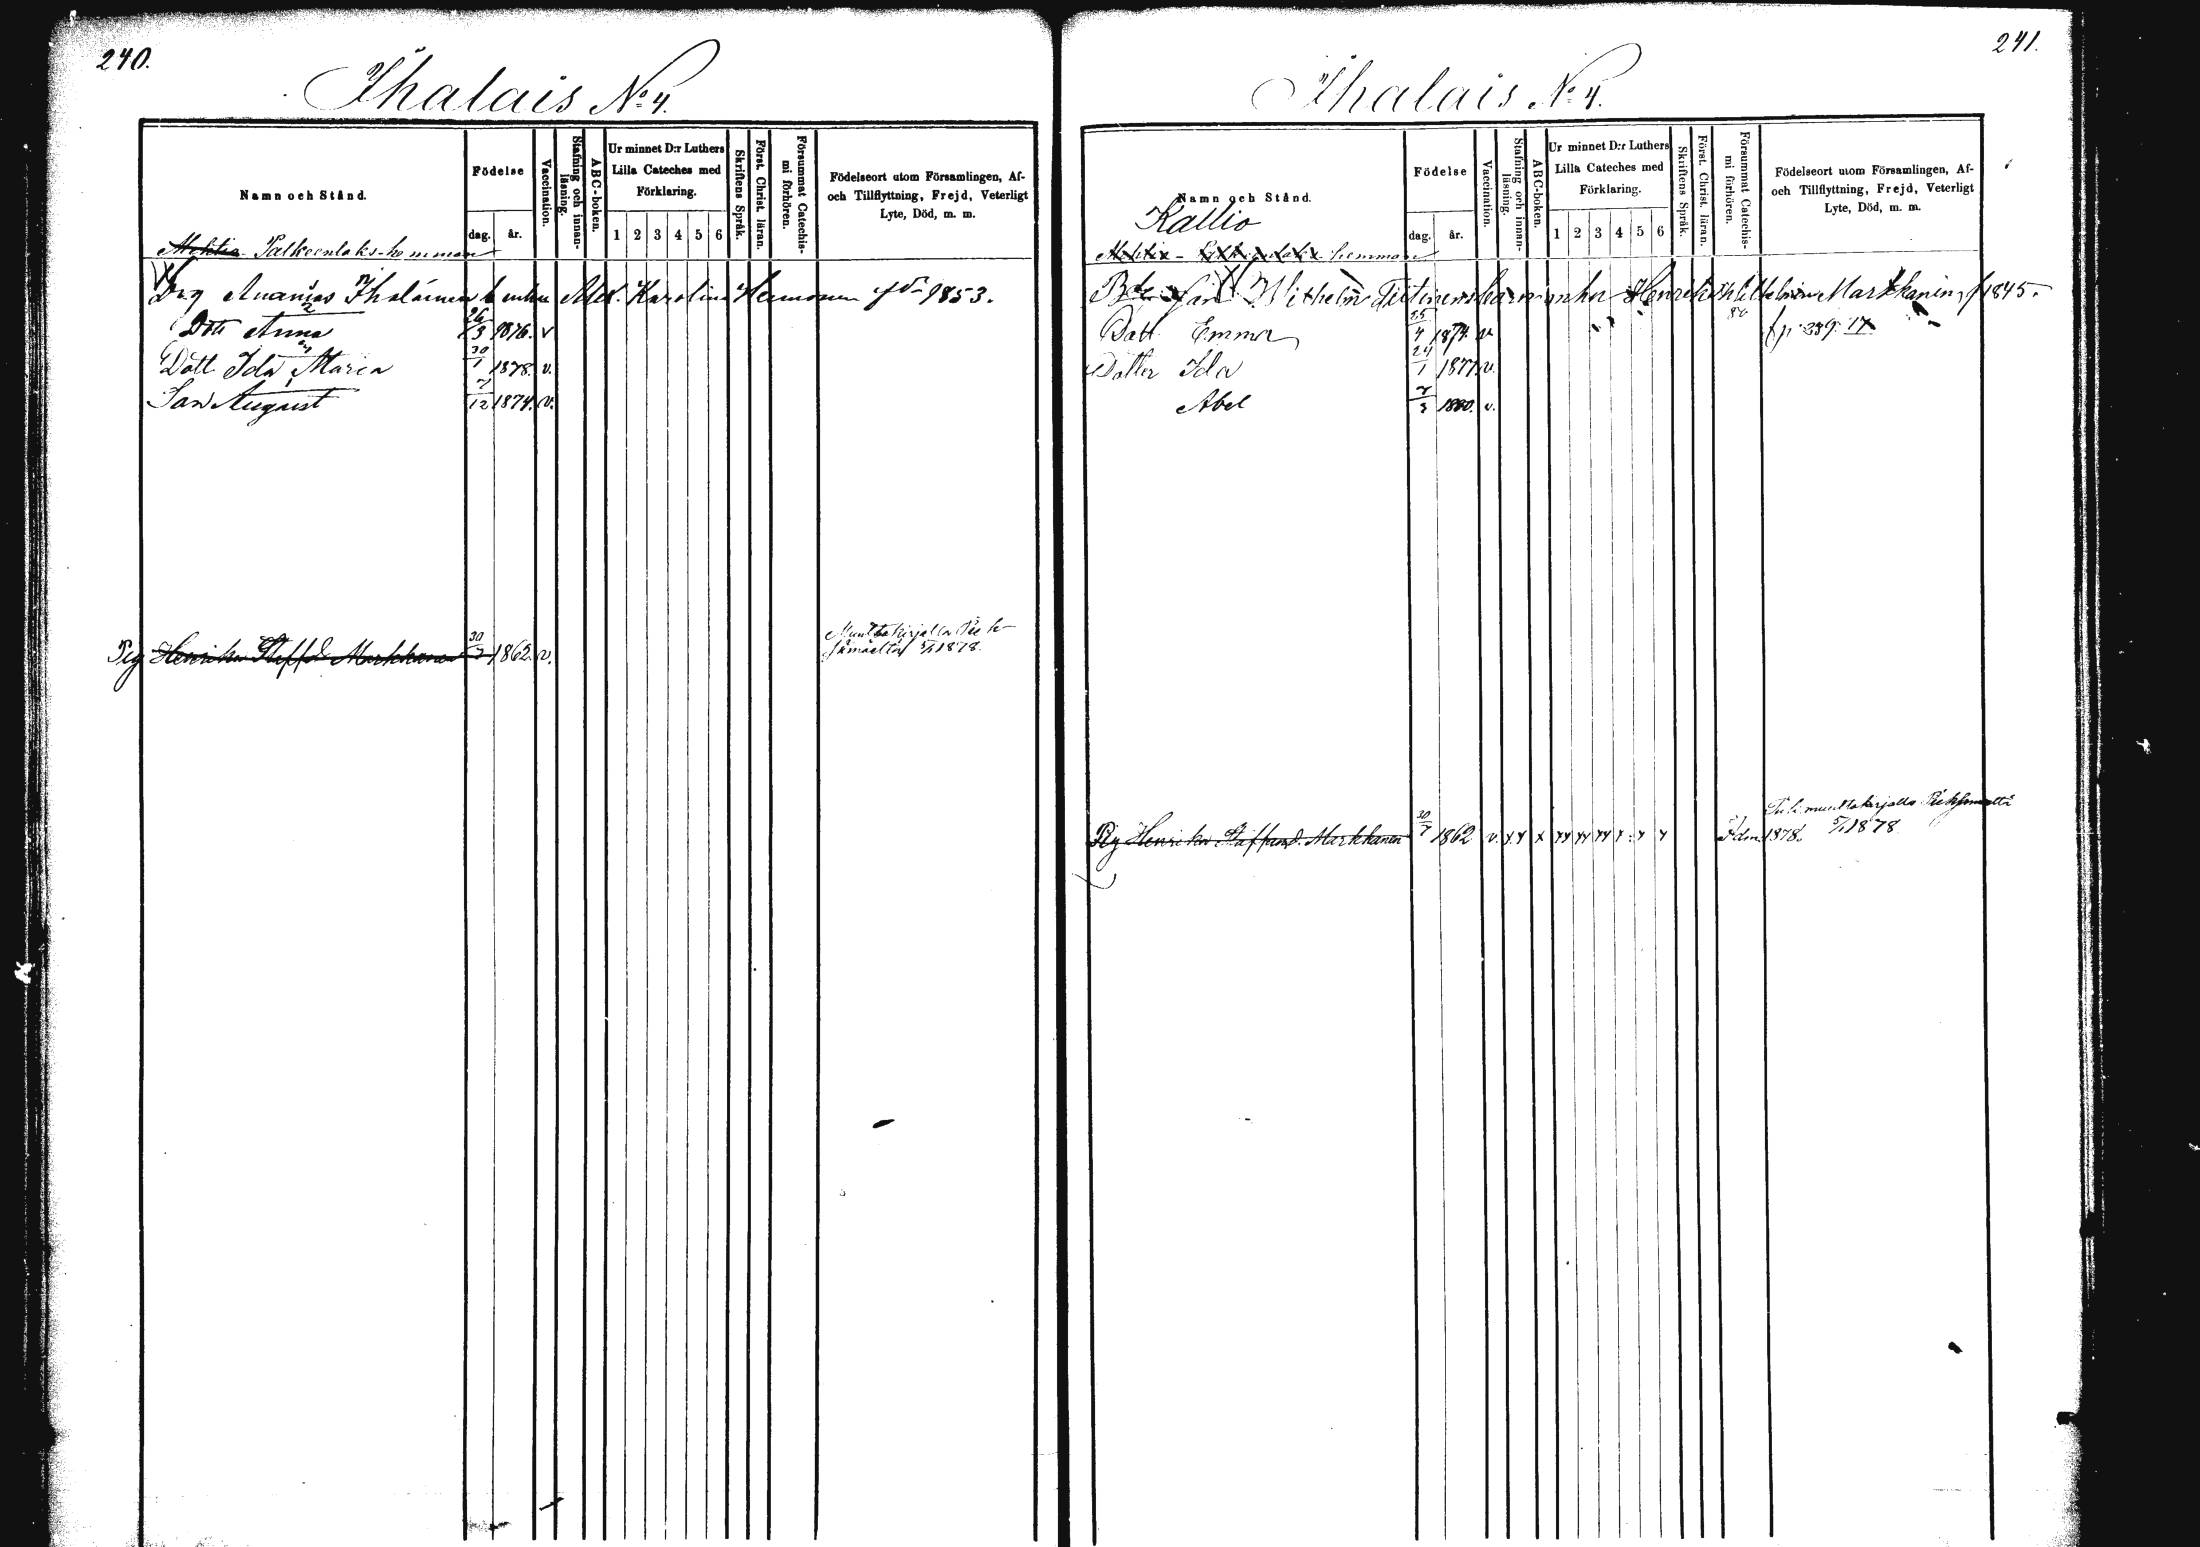 240.
Ihalais No 4.
Namn och Stånd.
Födelse
dag. år.
Vaccination.
Stafning och innan-
läsning.
ABC-boken.
Ur minnet D:r Luthers
Lilla Cateches med
Förklaring.
1 2 3 4 5 6
Skriftens Språk.
Först. Christ. läran.
Försummat Catechis-
mi förhören.
Födelseort utom Församlingen, Af-
och Tillflyttning, Frejd, Veterligt
Lyte, Död, m. m.
Palkeenlaks-hemman
Ananias Ihalainen enkan Karolina 1853.
Dott Anna 26/3 1876. v
Dott Ida Maria 30/1 1878. v.
Son August 7/12 1874. v.
Pig Henrika Staff.d. Markkanen 30/7 1862. v.
Muuttokirjalla Piek-
sämäeltä 1878.
241.
Ihalais No 4.
Namn och Stånd.
Kallio
Födelse
dag. år.
Vaccination.
Stafning och innan-
läsning.
ABC-boken.
Ur minnet D:r Luthers
Lilla Cateches med
Förklaring.
1 2 3 4 5 6
Skriftens Språk.
Först. Christ. läran.
Försummat Catechis-
mi förhören.
Födelseort utom Församlingen, Af-
och Tillflyttning, Frejd, Veterligt
Lyte, Död, m. m.
hemman
Wilhelm Markkanen f 1845.
Dott Emma 25/4 1874. v p. 239. 17
Dotter Ida 24/1 1877. v.
Abel 7/3 1880. v.
Pig Henrika Staffand. Markkanen 30/7 1862 v.
Tuli muuttokirjalla
1878. 1878